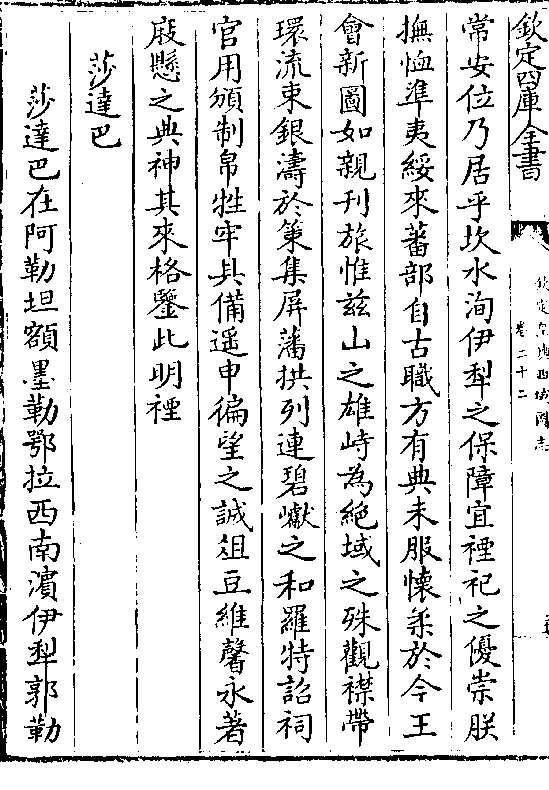 欽定四庫全書
欽定皇輿西域圖志
卷二十二
常安位乃居乎坎水洵伊犁之保障宜禋祀之優崇朕
撫恤準夷綏來蕃部自古職方有典未服懷柔於今王
會新圖如親刊旅惟兹山之雄峙為絶域之殊觀襟帶
環流束銀濤於箕集屏藩拱列連碧巘之和羅特詔祠
官用頒制帛牲牢具備遥申徧望之誠俎豆維馨永著
庪懸之典神其來格鑒此明禋
莎達巴
莎達巴在阿勒坦額墨勒鄂拉西南濵伊犁郭勒